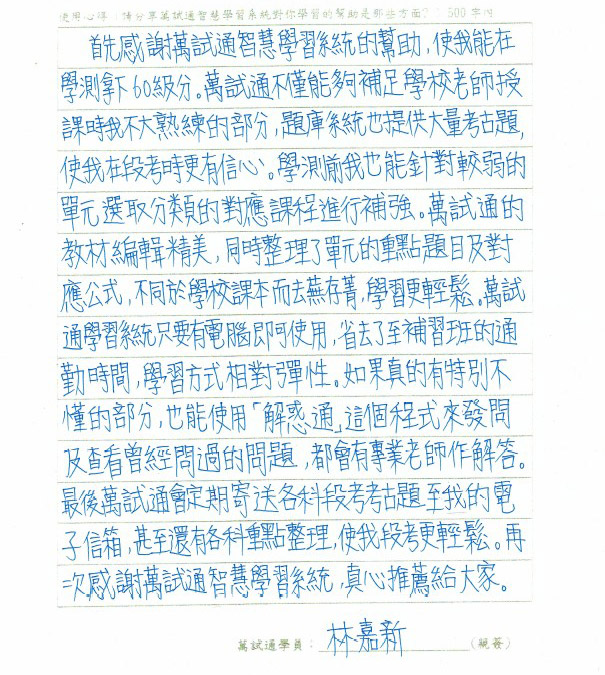 使用心得：(請分享萬試通智慧學習系統對你學習的幫助是那些方面？) 500字內
首先感謝萬試通智慧學習系統的幫助，使我能在
學測拿下60級分。萬試通不僅能夠補足學校老師授
課時我不大熟練的部分，題庫系統也提供大量考古題，
使我在段考時更有信心。學測前我也能針對較弱的
單元選取分類的對應課程進行補強。萬試通的
教材編輯精美，同時整理了單元的重點題目及對
應公式，不同於學校課本而去蕪存菁，學習更輕鬆。萬試
通學習系統只要有電腦即可使用，省去了至補習班的通
勤時間，學習方式相對彈性。如果真的有特別不
懂的部分，也能使用「解惑通」這個程式來發問
及查看曾經問過的問題，都會有專業老師作解答。
最後萬試通會定期寄送各科段考考古題至我的電
子信箱，甚至還有各科重點整理，使我段考更輕鬆。再
次感謝萬試通智慧學習系統，真心推薦給大家。
萬試通學員：林嘉新(親簽)